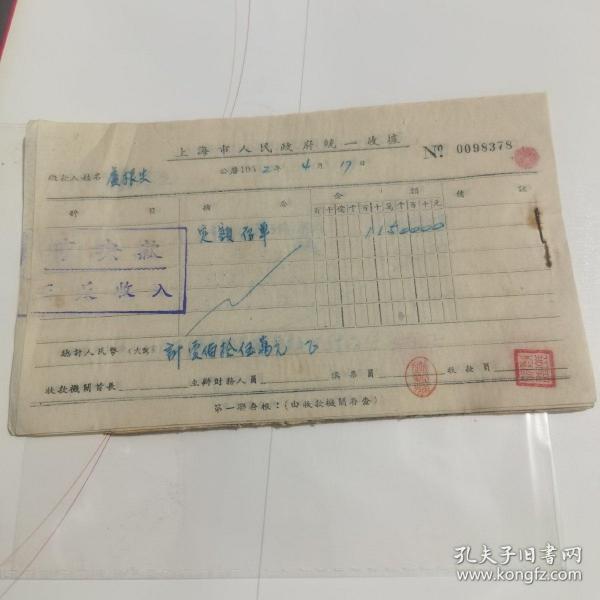 上海市人民政府統一收據
Nº 0098378
公曆1952年4月17日
繳款人姓名
科目 摘要 金額 備註
百十億千百十萬千百十元
定額存單 1150000
三反收入
總計人民幣(大寫) 壹佰拾伍萬元
收款機關首長 主辦財務人員 填票員 收款員
第一聯存根：(由收款機關存查)
孔夫子旧书网
www.kongfz.com